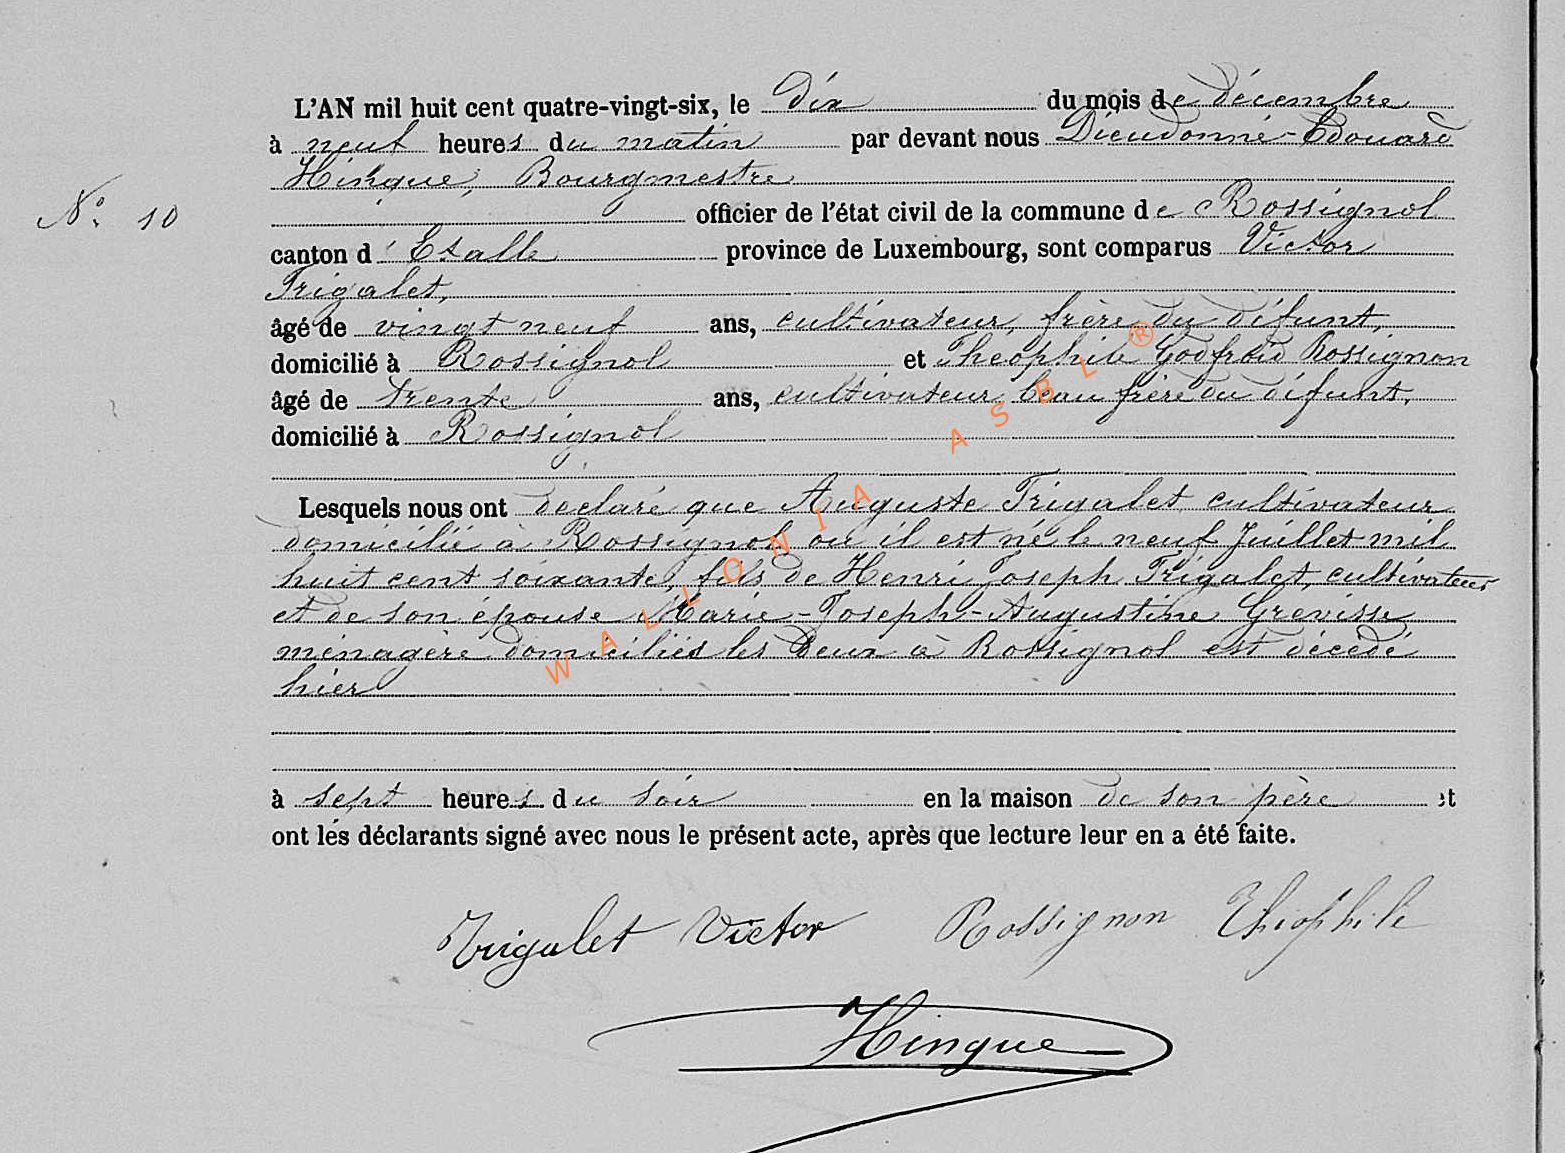 L'AN mil huit cent quatre-vingt-six, le dix du mois de décembre
à neuf heures du matin par devant nous Dieudonné-Edouard
Hinque, Bourgmestre
N° 10
officier de l'état civil de la commune de Rossignol
canton d'Etalle province de Luxembourg, sont comparus Victor
Trigalet,
âgé de vingt neuf ans, cultivateur, frère du défunt,
domicilié à Rossignol et Théophile Godfroid Rossignon
âgé de trente ans, cultivateur beau frère du défunt,
domicilié à Rossignol
Lesquels nous ont déclaré que Auguste Trigalet, cultivateur
domicilié à Rossignol où il est né le neuf Juillet mil
huit cent soixante, fils de Henri Joseph Trigalet, cultivateur
et de son épouse Marie-Joseph-Augustine Grevisse
ménagère domiciliés les deux à Rossignol est décédé
hier
à sept heures du soir en la maison de son père et
ont les déclarants signé avec nous le présent acte, après que lecture leur en a été faite.
Trigalet Victor Rossignon Théophile
Hinque
WALLONIA ASBL ®